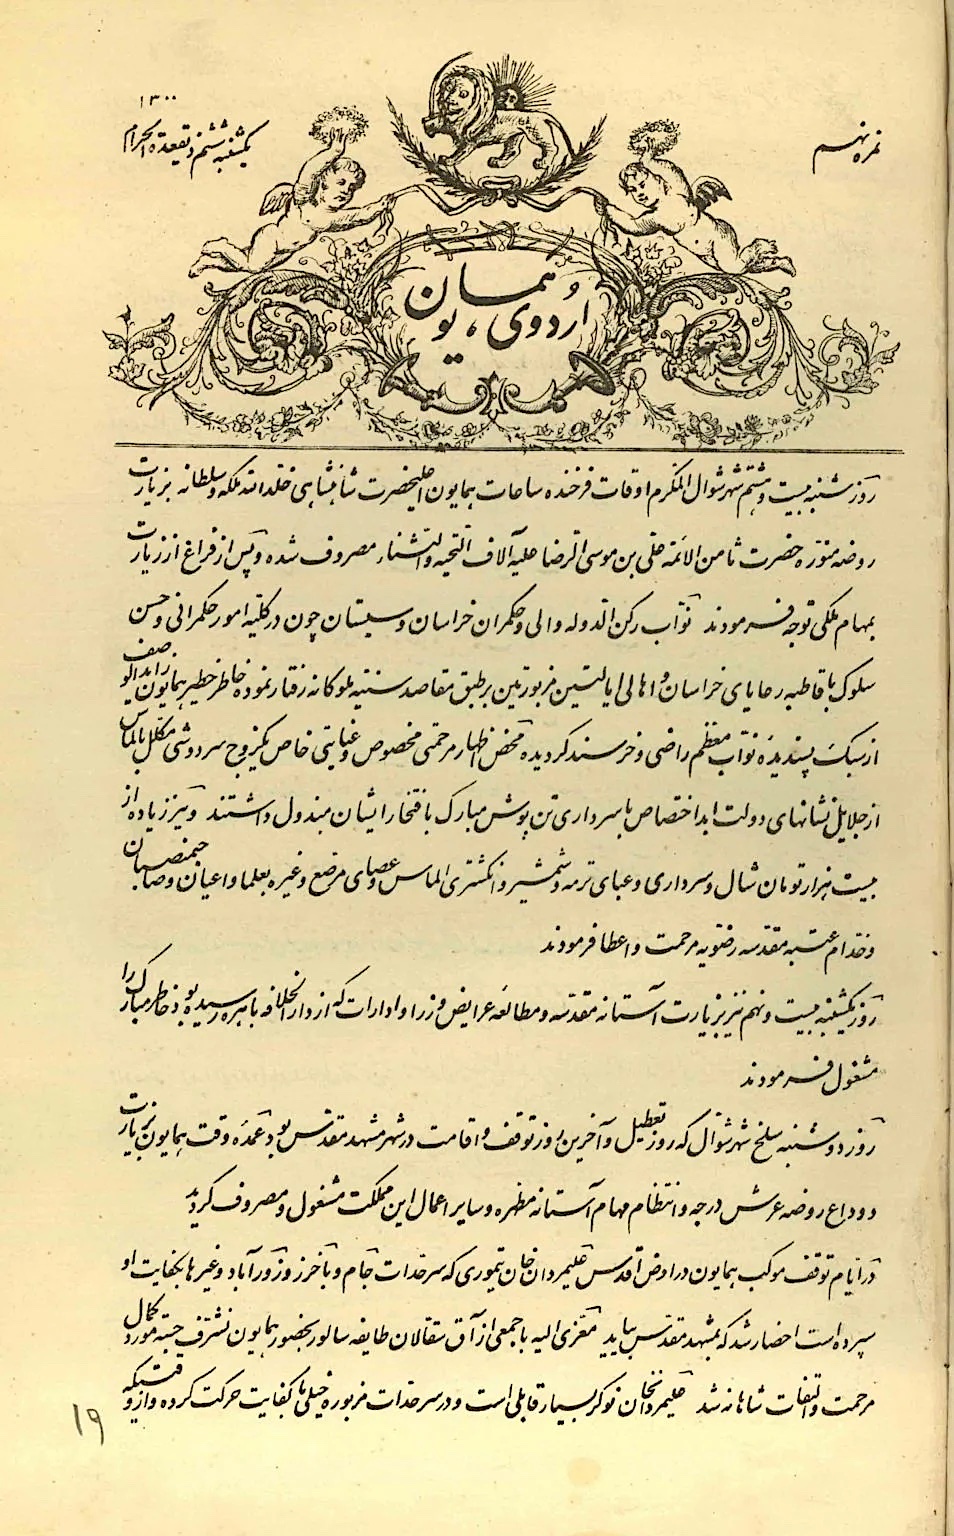 نمره نهم
۱۳۰۰
یکشنبه ششم ذیقعدة الحرام
اردوی همایون
روز شنبه بیست و هشتم شهر شوال المکرم اوقات فرخنده ساعات همایون اعلیحضرت شاهنشاهی خلد الله ملکه و سلطانه بزیارت
روضه منوره حضرت ثامن الائمه علی بن موسی الرضا علیه آلاف التحیه والثناء مصروف شده و پس از فراغ از زیارت
بمهام ملکی توجه فرمودند نواب رکن الدوله والی و حکمران خراسان و سیستان چون در کلیه امور حکمرانی و حسن
سلوک با قاطبه رعایای خراسان و اهالی ایالتین مزبورتین بر طبق مقاصد سنیه ملوکانه رفتار نموده خاطر خطیر همایون زاید الوصف
از سبک پسندیده نواب معظم راضی و خرسند گردیده محض اظهار مرحمتی مخصوص و عنایتی خاص یکزوج سردوشی مکلل بالماس
از جلایل نشانهای دولت ابد اختصاص با سرداری تن پوش مبارک بافتخار ایشان مبذول داشتند و نیز زیاده از
بیست هزار تومان شال و سرداری و عبای ترمه و شمشیر و انگشتری الماس و عصای مرصع و غیره بعلما و اعیان و صاحبمنصبان
و خدام عتبه مقدسه رضویه مرحمت و اعطا فرمودند
روز یکشنبه بیست و نهم نیز بزیارت آستانه مقدسه و مطالعه عرایض وزرا و ادارات که از دارالخلافه باهره رسیده بود خاطر مبارک را
مشغول فرمودند
روز دوشنبه سلخ شهر شوال که روز تعطیل و آخرین روز توقف و اقامت در شهر مشهد مقدس بود عمده وقت همایون بزیارت
و وداع روضه عرش درجه و انتظام مهام آستانه مطهره و سایر اعمال این مملکت مشغول و مصروف گردید
در ایام توقف موکب همایون در ارض اقدس علیمردان خان تیموری که سرحدات جام و باخرز و زورآباد و غیرها بکفایت او
سپرده است احضار شد که بمشهد مقدس بیاید معزی الیه با جمعی از آق سقالان طایفه سالور بحضور همایون تشرف جسته مورد کمال
مرحمت و التفات شاهانه شد علیمردانخان نوکر بسیار قابلی است و در سرحدات مزبوره خیلی با کفایت حرکت کرده و از وقتیکه
۱۹